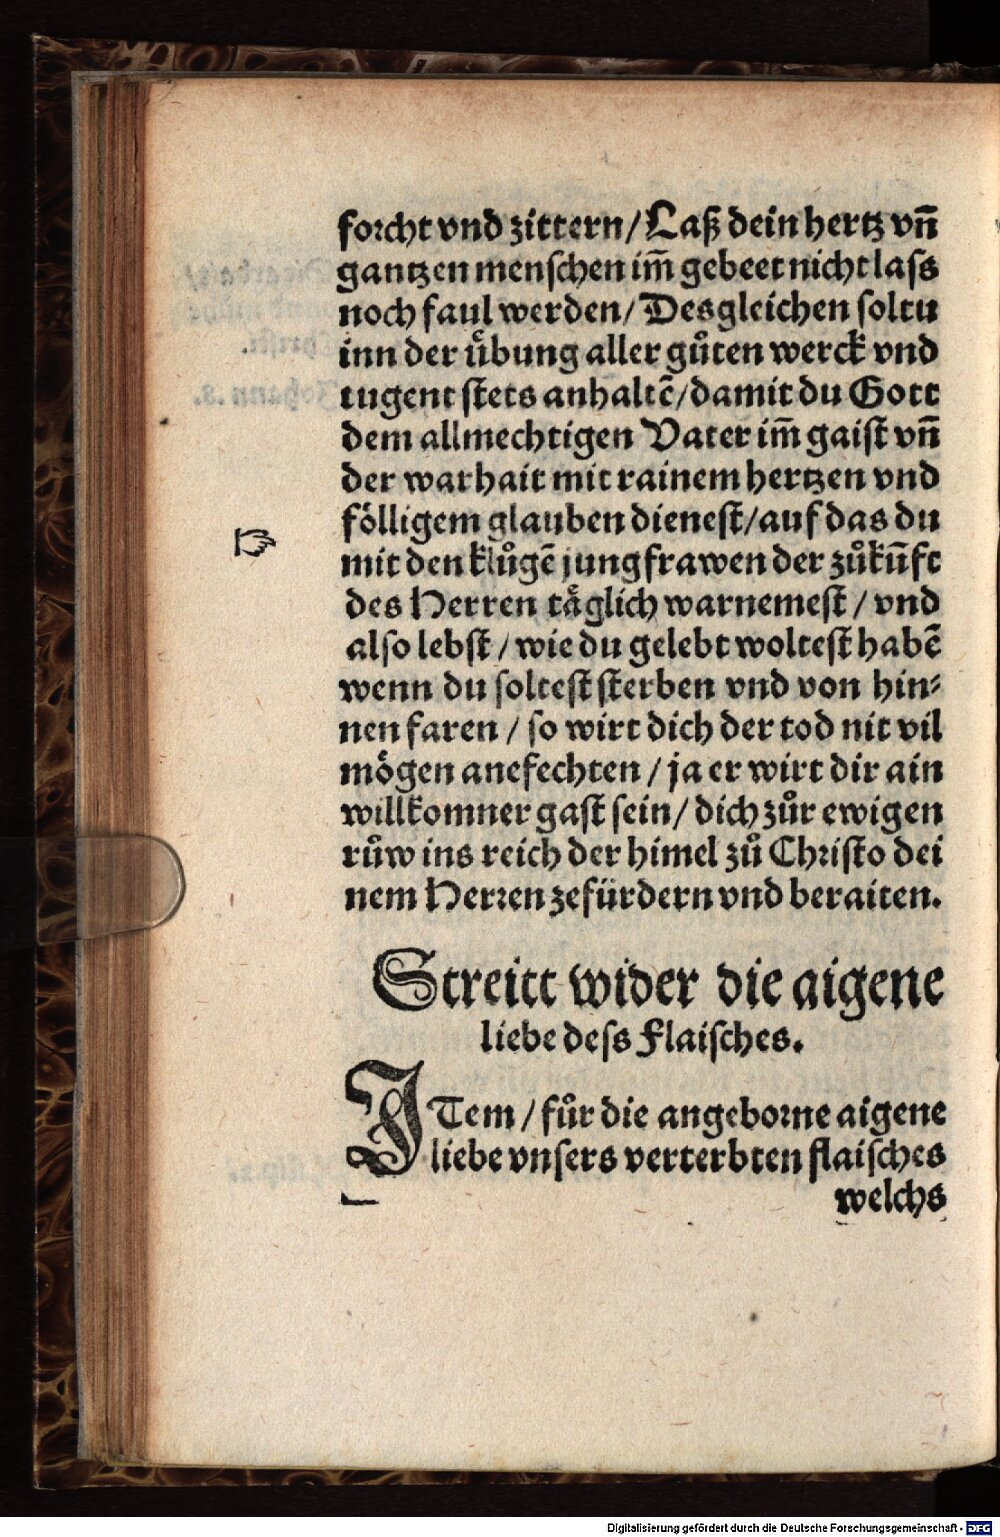 forcht vnd zittern/ Laß dein hertz vn̄
gantzen menschen im̄ gebeet nicht lass
noch faul werden/ Desgleichen soltu
inn der uͤbung aller guͦten werck vnd
tugent stets anhaltē/ damit du Gott
dem allmechtigen Vater im̄ gaist vn̄
der warhait mit rainem hertzen vnd
foͤlligem glauben dienest/ auf das du
☞ mit den kluͦgē jungfrawen der zuͦkun̄ft
des Herren taͤglich warnemest / vnd
also lebst / wie du gelebt woltest habē
wenn du soltest sterben vnd von hin⸗
nen faren / so wirt dich der tod nit vil
moͤgen anefechten / ja er wirt dir ain
willkomner gast sein/ dich zuͦr ewigen
ruͦw ins reich der himel zuͦ Christo dei
nem Herren zefürdern vnd beraiten.
Streitt wider die aigene
liebe dess Flaisches.
ITem / fuͦr die angeborne aigene
liebe vnsers verterbten flaisches
welchs
Digitalisierung gefördert durch die Deutsche Forschungsgemeinschaft - DFG